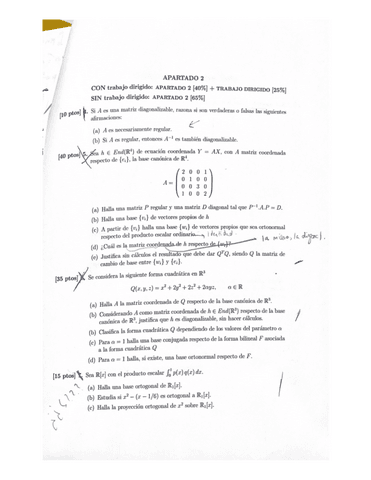 APARTADO 2
CON trabajo dirigido: APARTADO 2 [40%] + TRABAJO DIRIGIDO [25%]
SIN trabajo dirigido: APARTADO 2 [65%]
[10 ptos] Si A es una matriz diagonalizable, razona si son verdaderas o falsas las siguientes
afirmaciones:
(a) A es necesariamente regular.
(b) Si A es regular, entonces A⁻¹ es también diagonalizable.
[40 ptos] Sea h ∈ End(ℝ⁴) de ecuación coordenada Y = AX, con A matriz coordenada
respecto de {eᵢ}, la base canónica de ℝ⁴.
A =
2 0 0 1
0 1 0 0
0 0 3 0
1 0 0 2
(a) Halla una matriz P regular y una matriz D diagonal tal que P⁻¹A.P = D.
(b) Halla una base {vᵢ} de vectores propios de h
(c) A partir de {vᵢ} halla una base {wᵢ} de vectores propios que sea ortonormal
respecto del producto escalar ordinario.
(d) ¿Cuál es la matriz coordenada de h respecto de {wᵢ}?
(e) Justifica sin cálculos el resultado que debe dar QᵗQ, siendo Q la matriz de
cambio de base entre {wᵢ} y {eᵢ}.
[35 ptos] Se considera la siguiente forma cuadrática en ℝ³
Q(x, y, z) = x² + 2y² + 2z² + 2αyz, α ∈ ℝ
(a) Halla A la matriz coordenada de Q respecto de la base canónica de ℝ³.
(b) Considerando A como matriz coordenada de h ∈ End(ℝ³) respecto de la base
canónica de ℝ³, justifica que h es diagonalizable, sin hacer cálculos.
(b) Clasifica la forma cuadrática Q dependiendo de los valores del parámetro α
(c) Para α = 1 halla una base conjugada respecto de la forma bilineal F asociada
a la forma cuadrática Q
(d) Para α = 1 halla, si existe, una base ortonormal respecto de F.
[15 ptos] Sea ℝ[x] con el producto escalar ∫₀¹ p(x) q(x) dx.
(a) Halla una base ortogonal de ℝ₁[x].
(b) Estudia si x² − (x − 1/6) es ortogonal a ℝ₁[x].
(c) Halla la proyección ortogonal de x² sobre ℝ₁[x].